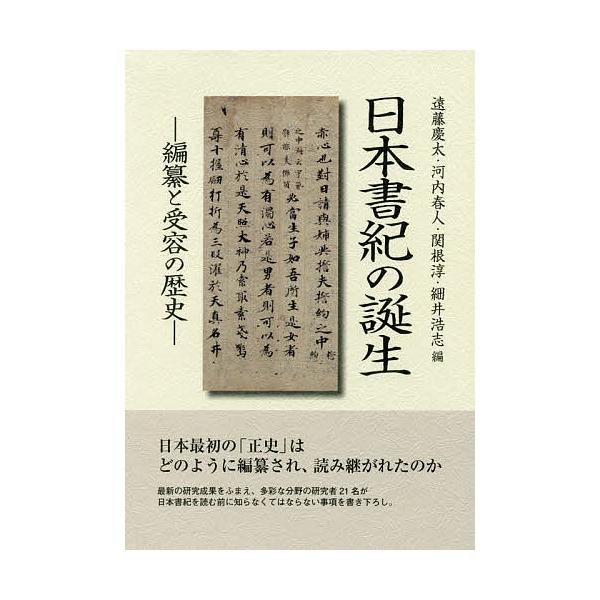 遠藤慶太・河内春人・関根淳・細井浩志 編
日本書紀の誕生
―編纂と受容の歴史―
赤心也對曰請與姉共誓夫誓約之中
必當生子如吾所生是女者
則可以為有濁心若是男者則可以為
有清心於是天照大神乃索取素戔嗚
尊十握劔打折為三段濯於天真名井
日本最初の「正史」は
どのように編纂され、読み継がれたのか
最新の研究成果をふまえ、多彩な分野の研究者21名が
日本書紀を読む前に知らなくてはならない事項を書き下ろし。